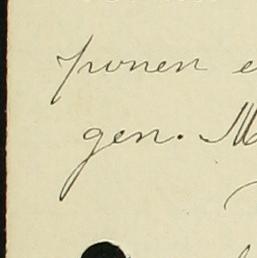 ponen e
gen. M